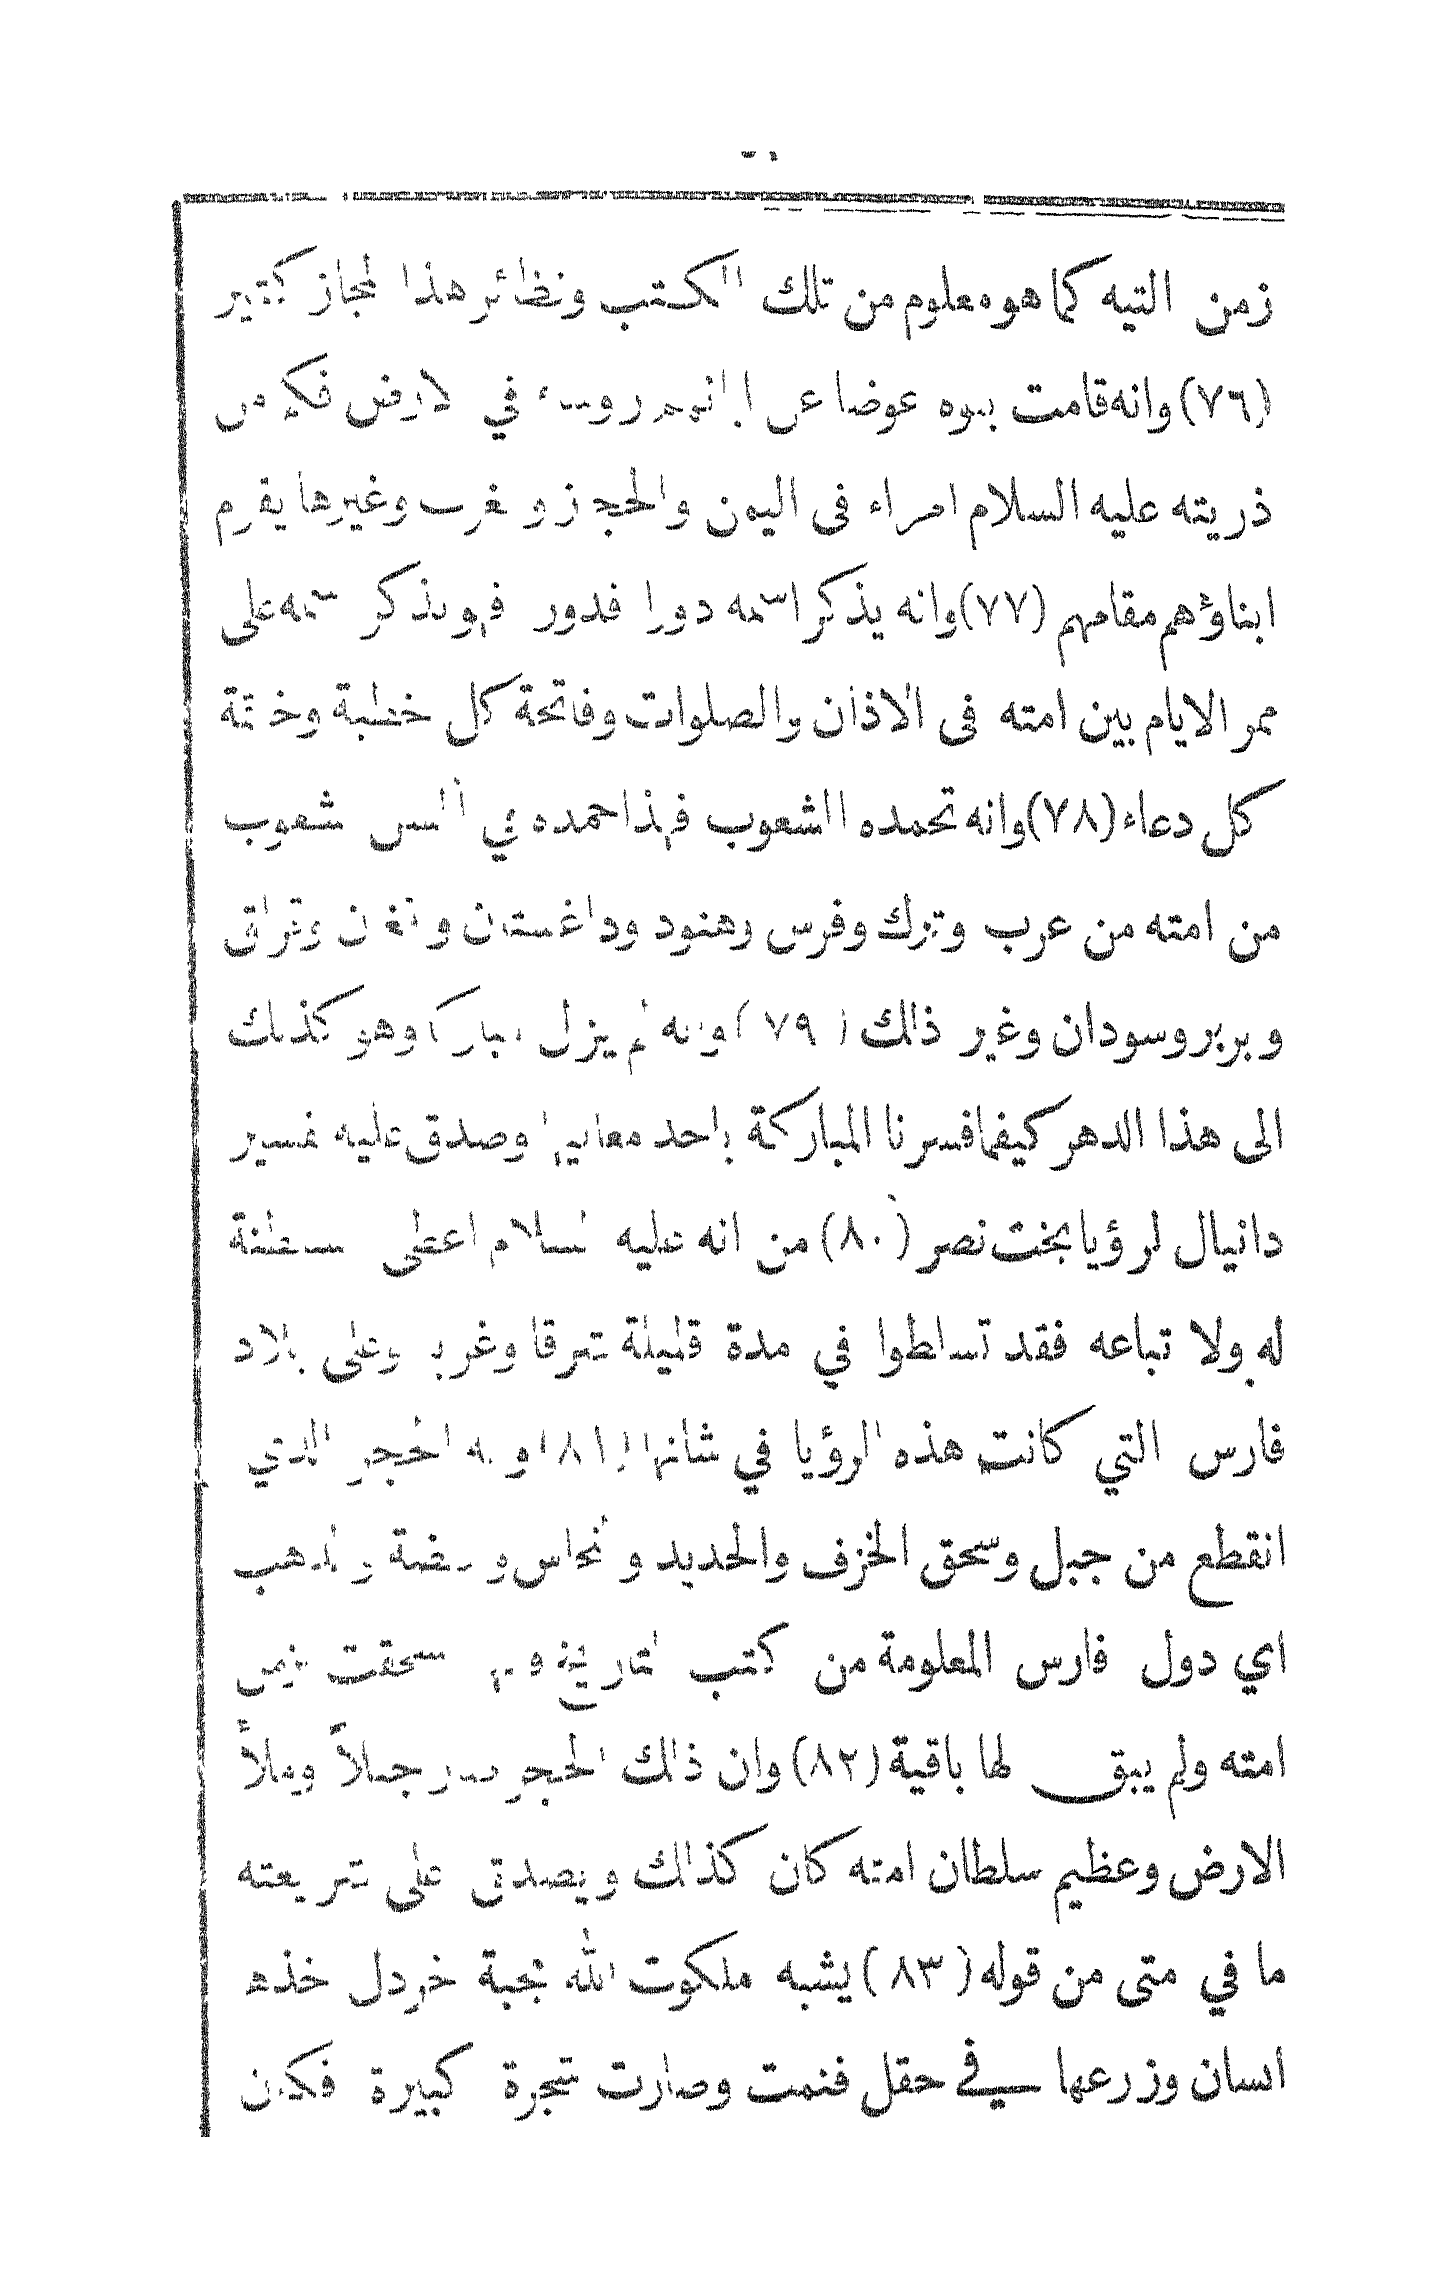 زمن التيه كما هو معلوم من تلك الكتب ونظائر هذا المجاز كثير
(٧٦) وانه قامت بنوه عوضا عن في الارض فكم من
ذريته عليه السلام امراء فى اليمن والحجاز والمغرب وغيرها يقوم
ابناؤهم مقامهم (٧٧) وانه يذكر اسمه دورا فدور فهو يذكر اسمه على
ممر الايام بين امته فى الاذان والصلوات وفاتحة كل خطبة وخاتمة
كل دعاء (٧٨) وانه تحمده الشعوب فهذا حمده في ألسن شعوب
من امته من عرب وترك وفرس وهنود وداغستان وافغان
وبربر وسودان وغير ذالك (٧٩) وانه لم يزل مباركا وهو كذلك
الى هذا الدهر كيفما فسرنا المباركة باحد معانيها وصدق عليه تفسير
دانيال لرؤيا بخت نصر (٨٠) من انه عليه السلام اعطى سلطنة
له ولا تباعه فقد تسلطوا في مدة قليلة شرقا وغربا وعلى بلاد
فارس التي كانت هذه الرؤيا في شانها (٨١) وانه الحجر الذي
انقطع من جبل وسحق الخزف والحديد والنحاس والفضة والذهب
اي دول فارس المعلومة من كتب التاريخ سحقت
امته ولم يبق لها باقية (٨٢) وان ذالك الحجر صار جبلاً وملأ
الارض وعظيم سلطان امته كان كذالك ويصدق على شريعته
ما في متى من قوله (٨٣) يشبه ملكوت الله بحبة خردل اخذها
انسان وزرعها في حقل فنمت وصارت شجرة كبيرة فكان